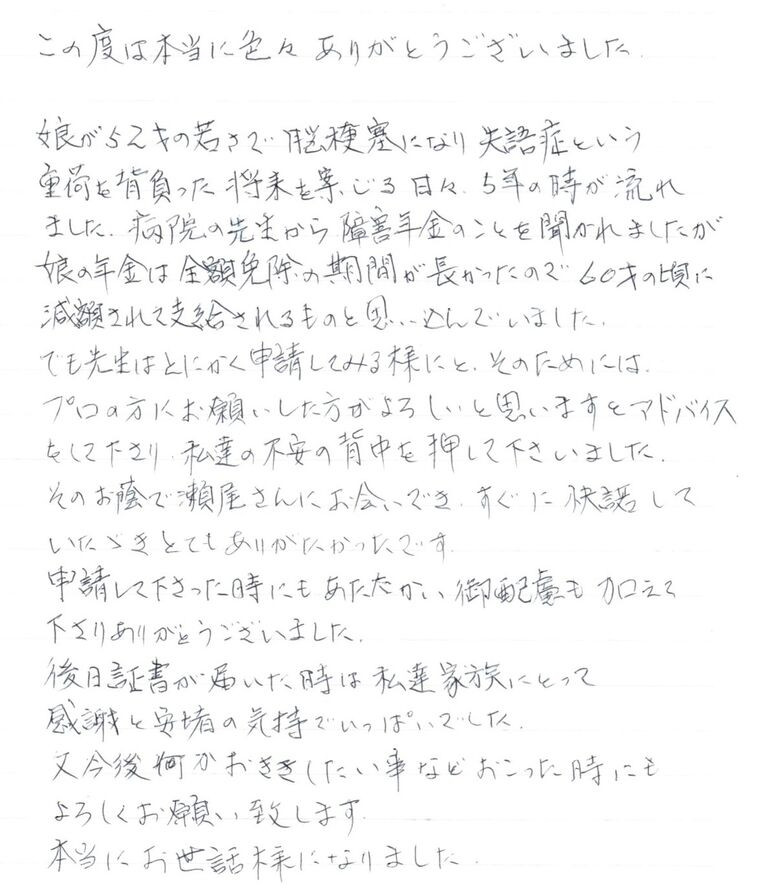 この度は本当に色々ありがとうございました.
娘が52才の若さで脳梗塞になり失語症という
重荷を背負った将来を案じる日々、5年の時が流れ
ました.病院の先生から障害年金のことを聞かれましたが
娘の年金は全額免除の期間が長かったので60才の頃に
減額されて支給されるものと思い込んでいました.
でも先生はとにかく申請してみる様にと、そのためには、
プロの方にお願いした方がよろしいと思いますとアドバイス
をして下さり、私達の不安の背中を押して下さいました.
そのお蔭で瀬尾さんにお会いでき、すぐに快諾して
いたゞきとてもありがたかったです.
申請して下さった時にもあたたかい御配慮も加えて
下さりありがとうございました.
後日証書が届いた時は私達家族にとって
感謝と安堵の気持でいっぱいでした.
又今後何かおききしたい事などおこった時にも
よろしくお願い致します.
本当にお世話様になりました.